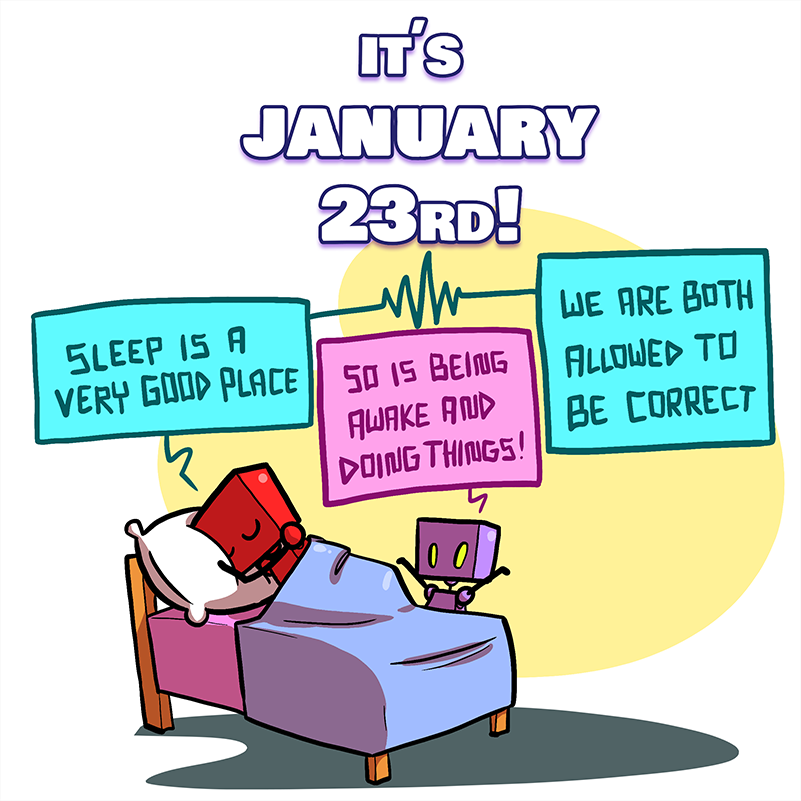 IT'S
JANUARY
23RD!
SLEEP IS A
VERY GOOD PLACE
SO IS BEING
AWAKE AND
DOING THINGS!
WE ARE BOTH
ALLOWED TO
BE CORRECT